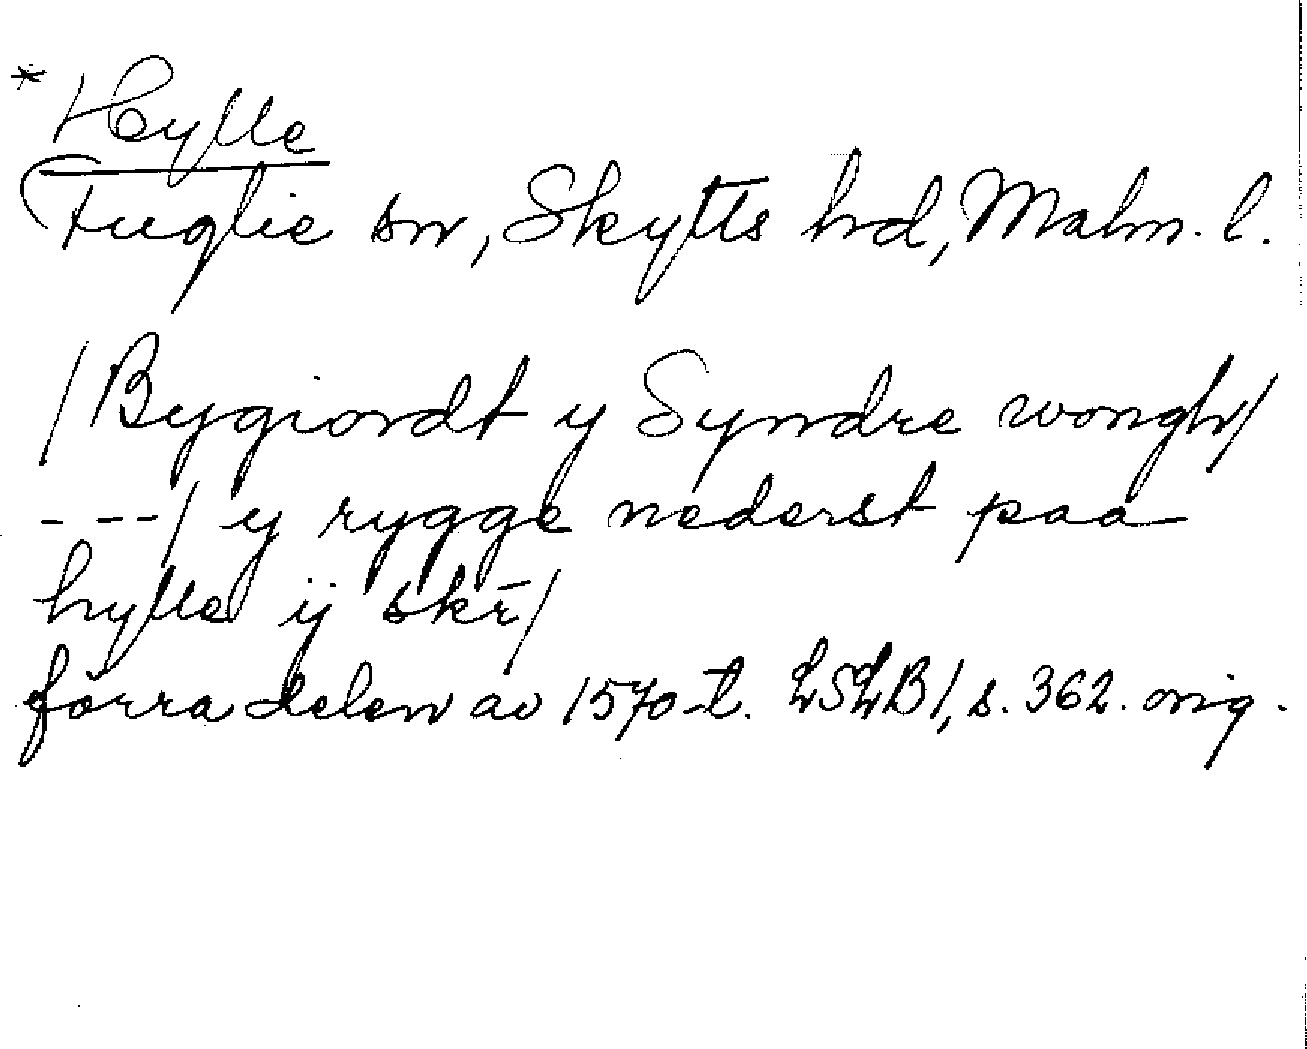 * Hylle
Fuglie sn, Skytts hd, Malm. l.
/Bygiordt y Syndre wongh/
- - - / y rygge nederst paa
hylle ij skr̄/
förra delen av 1570-t. LSLB1, s. 362. orig.